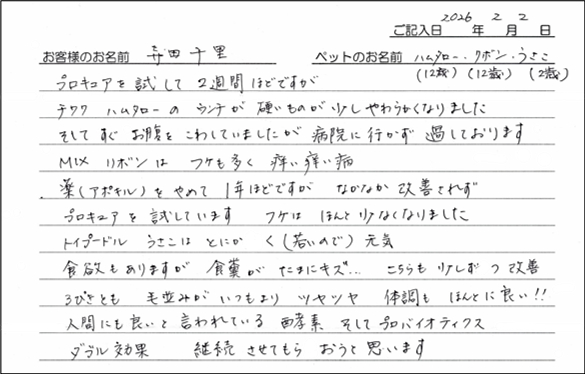 ご記入日 2026 年 2 月 2 日
お客様のお名前 寺田千里 ペットのお名前 ハムタロー・リボン・うさこ
(12歳) (12歳) (2歳)
プロキュアを試して 2週間ほどですが
チワワ ハムタローの ウンチが 硬いものが少しやわらかくなりました
そして すぐ お腹を こわしていましたが 病院に行かず 過しております
MIX リボンは フケも多く 痒い痒い病
薬(アポキル)をやめて 1年ほどですが なかなか 改善されず
プロキュアを試しています フケは ほんと少なくなりました
トイプードル うさこは とにかく(若いので)元気
食欲もありますが 食糞が たまにキズ… こちらも少しずつ改善
3びきとも 毛並みが いつもより ツヤツヤ 体調も ほんとに良い!!
人間にも良いと言われている 酵素 そして プロバイオティクス
ダブル効果 継続させてもらおうと思います